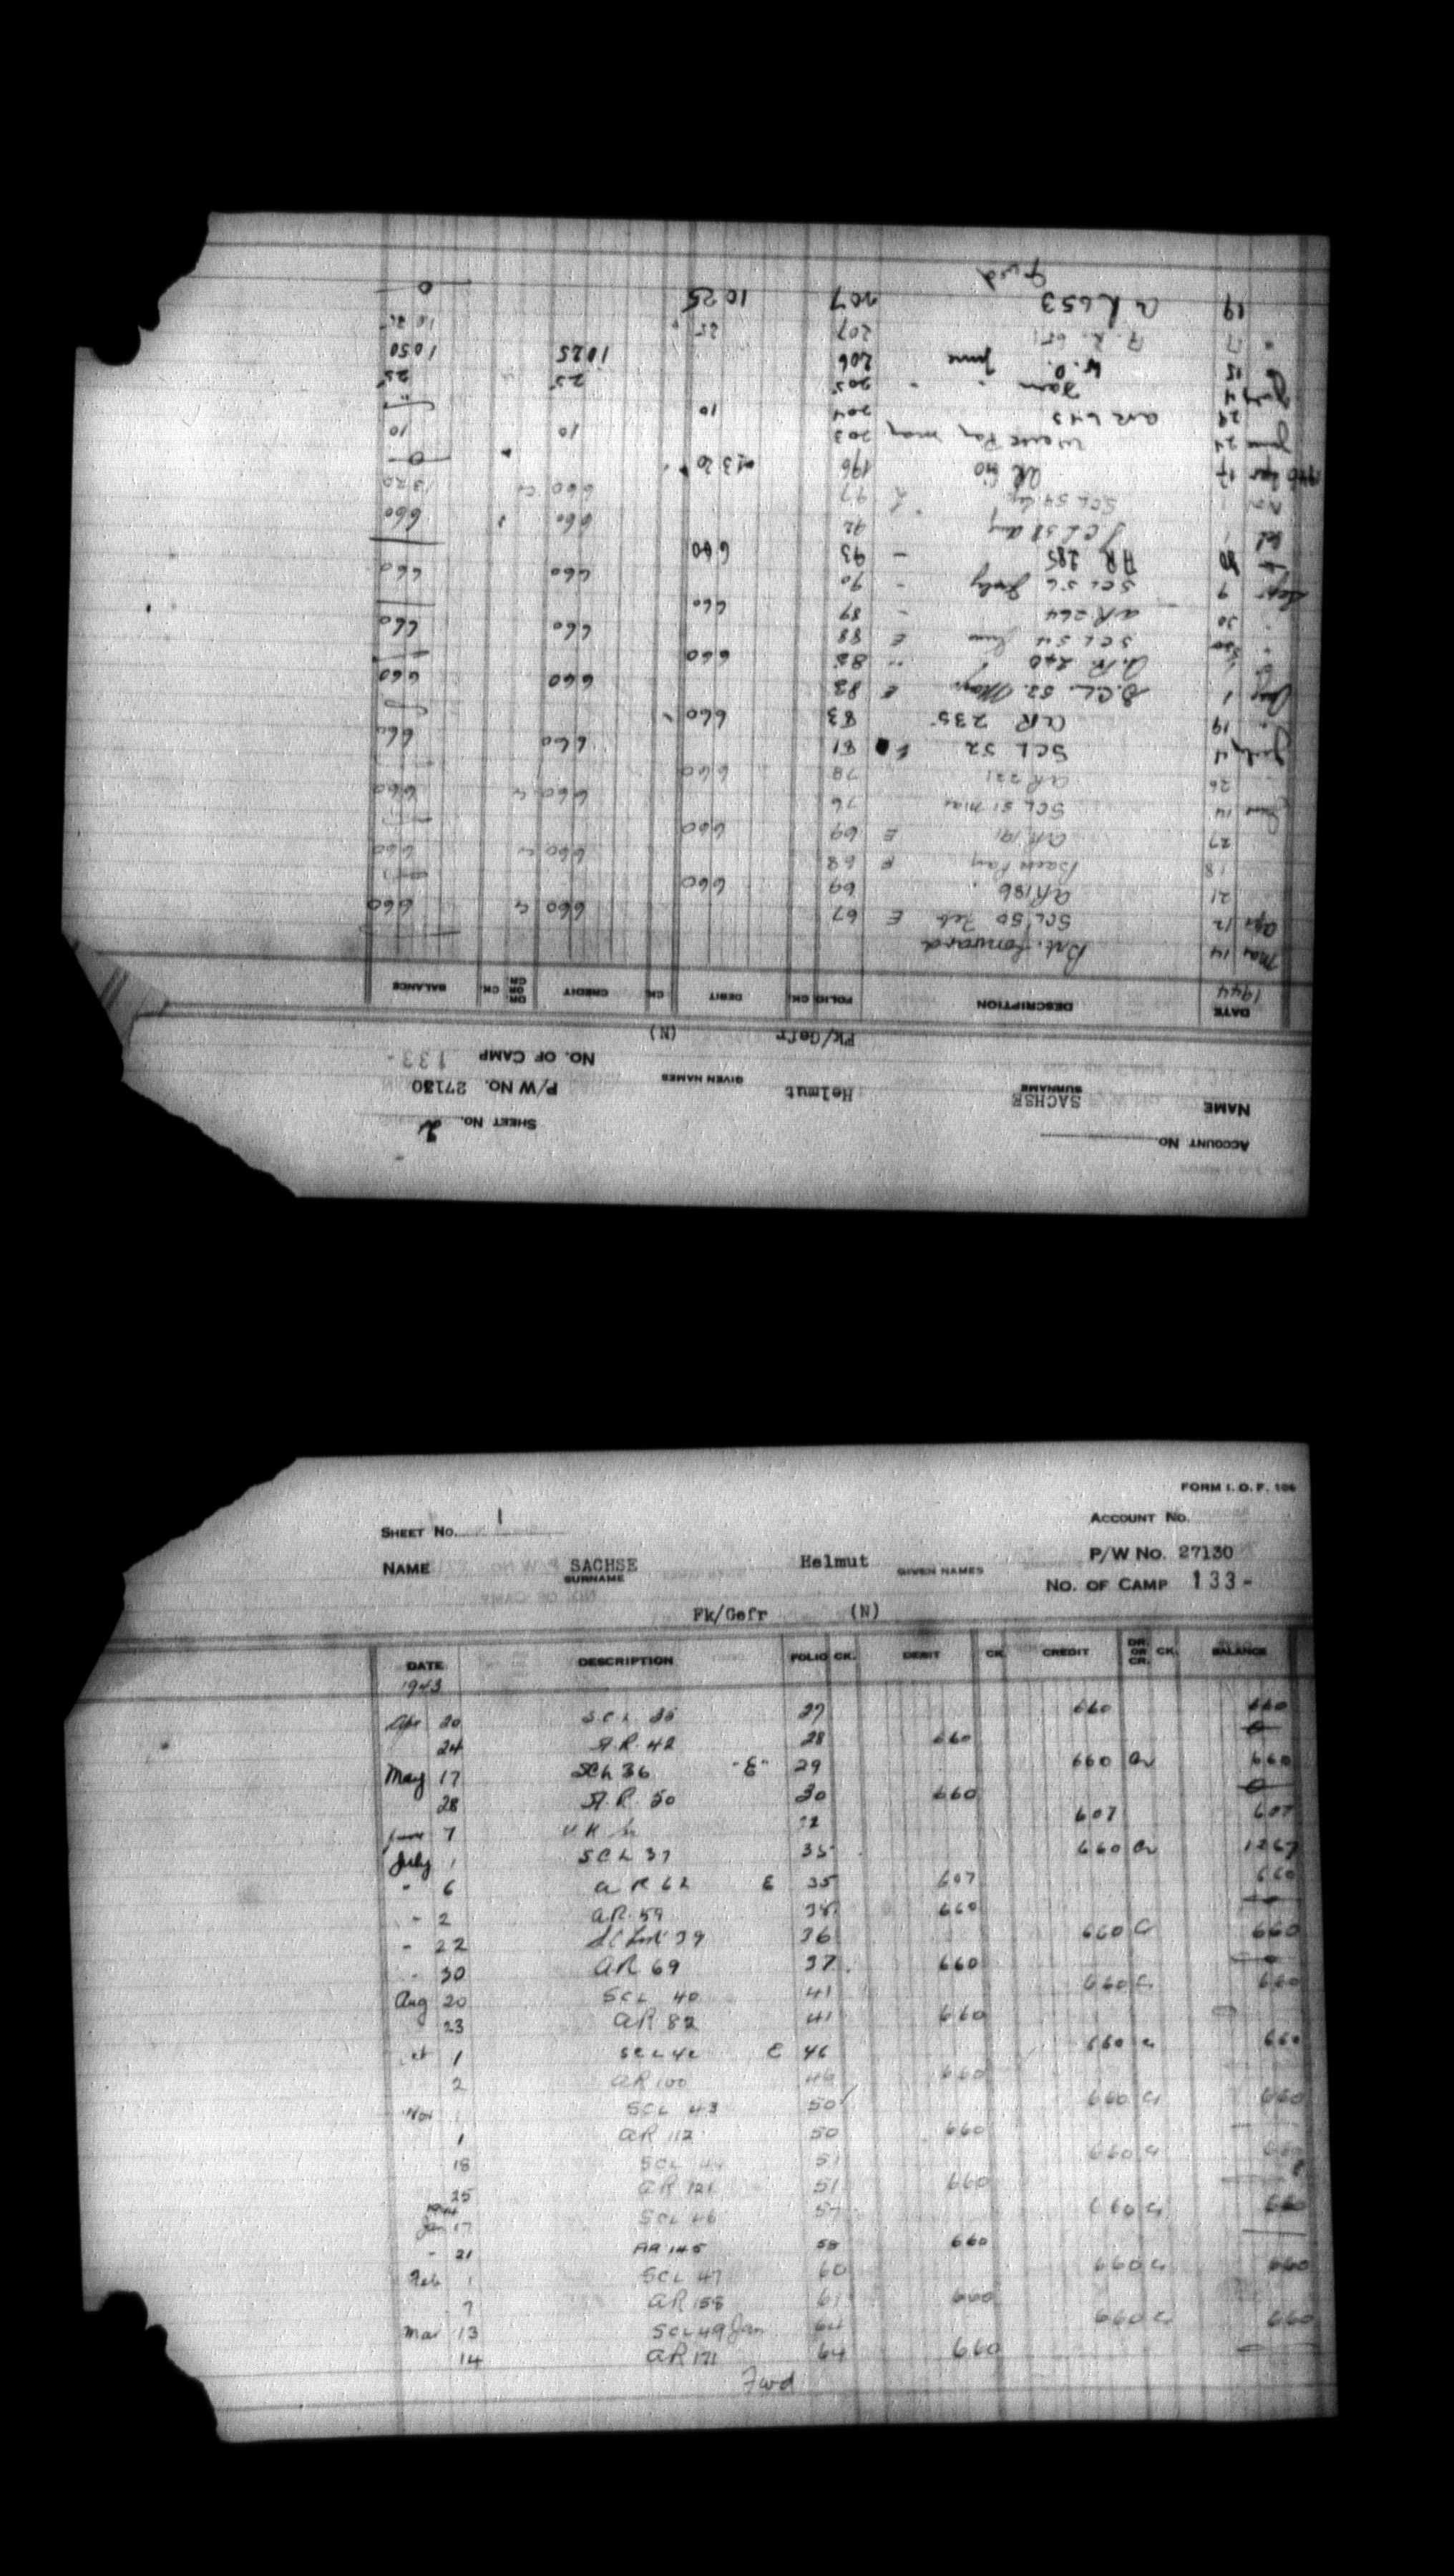 ACCOUNT No.
SHEET No. 2
NAME SACHSE Helmut P/W No. 27130
SURNAME GIVEN NAMES
NO. OF CAMP 133-
Fk/Gefr (N)
DATE DESCRIPTION FOLIO CK. DEBIT CK. CREDIT DR. OR CR. CK. BALANCE
1944
Mar 14 Brt. forward
Apr 12 SCL 50 Feb E 67 660 660
21 AR 186 69 660
18 Back Pay E 68 660 660
27 AR 191 E 69 660
June 14 SCL 51 Mar 76 660 660
26 AR 221 78 660
July 4 SCL 52 E 81 660 660
19 AR 235 83 660
Aug 1 S.C.L. 52. May E 83 660 660
A.R. 240 85 660
SCL 54 June E 88 660 660
30 AR 264 - 89 660
Sept 9 SCL 56 July - 90 660 660
AR 285 - 93 660
Oct SCL 58 Aug 92 660 660
Nov SCL 59 Sep 97 660 1320
1946 17 AR 196 1320 0
June 24 Work Pay May 203 10 10
29 AR 643 204 10
July 4 205 25 25
15 W.O. June 206 1025 1050
" 17 A.R. 651 207 25 1025
19 AR 653 207 1025 0
Fwd
FORM I.O.F. 106
SHEET No. 1 ACCOUNT No.
NAME SACHSE Helmut P/W No. 27130
SURNAME GIVEN NAMES
NO. OF CAMP 133-
Fk/Gefr (N)
DATE DESCRIPTION FOLIO CK. DEBIT CK. CREDIT DR. OR CR. CK. BALANCE
1943
Apr 20 SCL 35 27 660 660
24 A.R. 42 28 660 0
May 17 SCL 36 "E" 29 660 Cr 660
28 A.R. 50 30 660 0
June 7 607 607
July 1 SCL 37 35 660 Cr 1267
" 6 AR 62 E 35 607 660
- 2 AR 59 38 660 0
- 22 39 36 660 Cr 660
- 30 AR 69 37 660 0
Aug 20 SCL 40 41 660 Cr 660
23 AR 82 41 660 0
1 SCL 42 E 46 660 Cr 660
2 AR 100 46 660
Nov SCL 43 50 660 Cr 660
1 AR 112 50 660
18 SCL 51 660 Cr 660
25 AR 121 51 660
1944
Jan 17 SCL 46 57 660 Cr 660
- 21 AR 145 58 660
Feb 1 SCL 47 60 660 Cr 660
7 AR 158 61 660
Mar 13 SCL 49 Jan 64 660 Cr 660
14 AR 171 64 660
Fwd